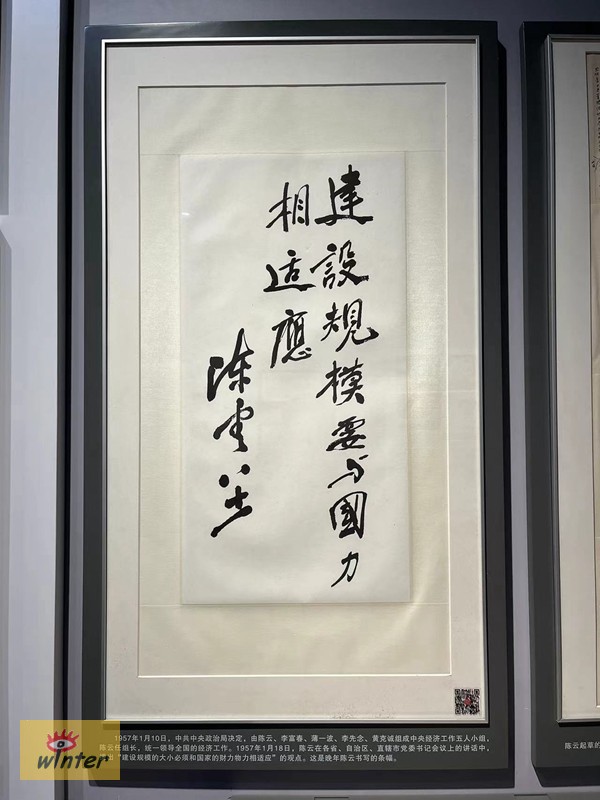 建設規模要与國力
相适應
陈云八十
1957年1月10日，中共中央政治局决定，由陈云、李富春、薄一波、李先念、黄克诚组成中央经济工作五人小组，
陈云任组长，统一领导全国的经济工作。1957年1月18日，陈云在各省、自治区、直辖市党委书记会议上的讲话中，
出“建设规模的大小必须和国家的财力物力相适应”的观点。这是晚年陈云书写的条幅。
陈云起草的
winter